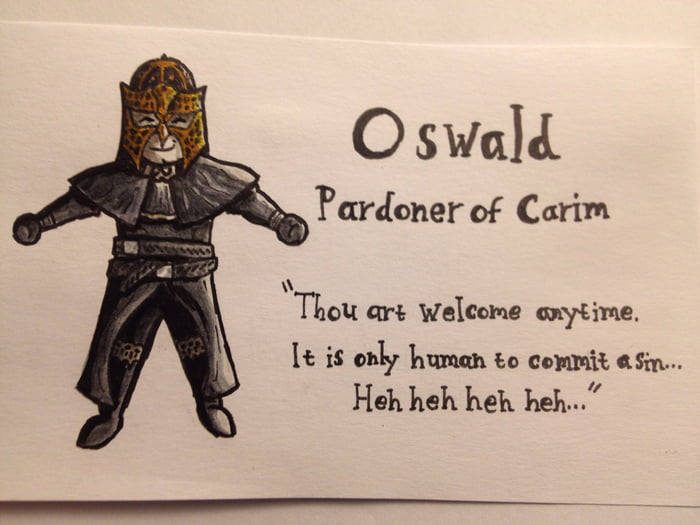 Oswald
Pardoner of Carim
"Thou art welcome anytime.
It is only human to commit a sin...
Heh heh heh heh..."